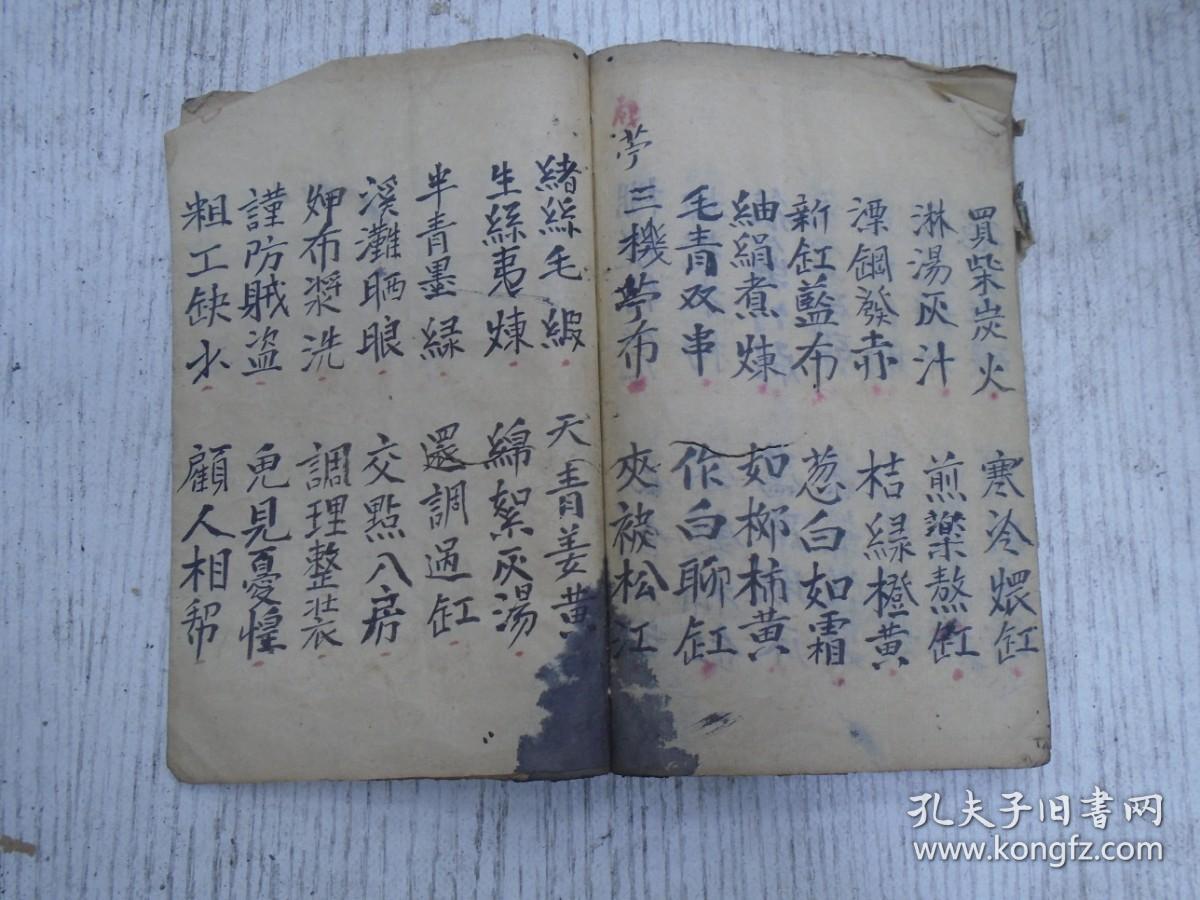 買柴炭火 寒冷煨缸
淋湯灰汁 煎藥熬缸
漂鋼發赤 桔緑橙黄
新缸藍布 葱白如霜
紬絹煮煉 如榔柿黄
毛青双串 作白聊缸
三機葶布 夾被松江
葶
緒絲毛緞 天青姜黄
生絲夷煉 綿絮灰湯
半青墨緑 還調過缸
溪灘晒眼 交點八房
布漿洗 調理整裝
謹防賊盗 免見憂惶
粗工缺少 顧人相帮
孔夫子旧书网
www.kongfz.com